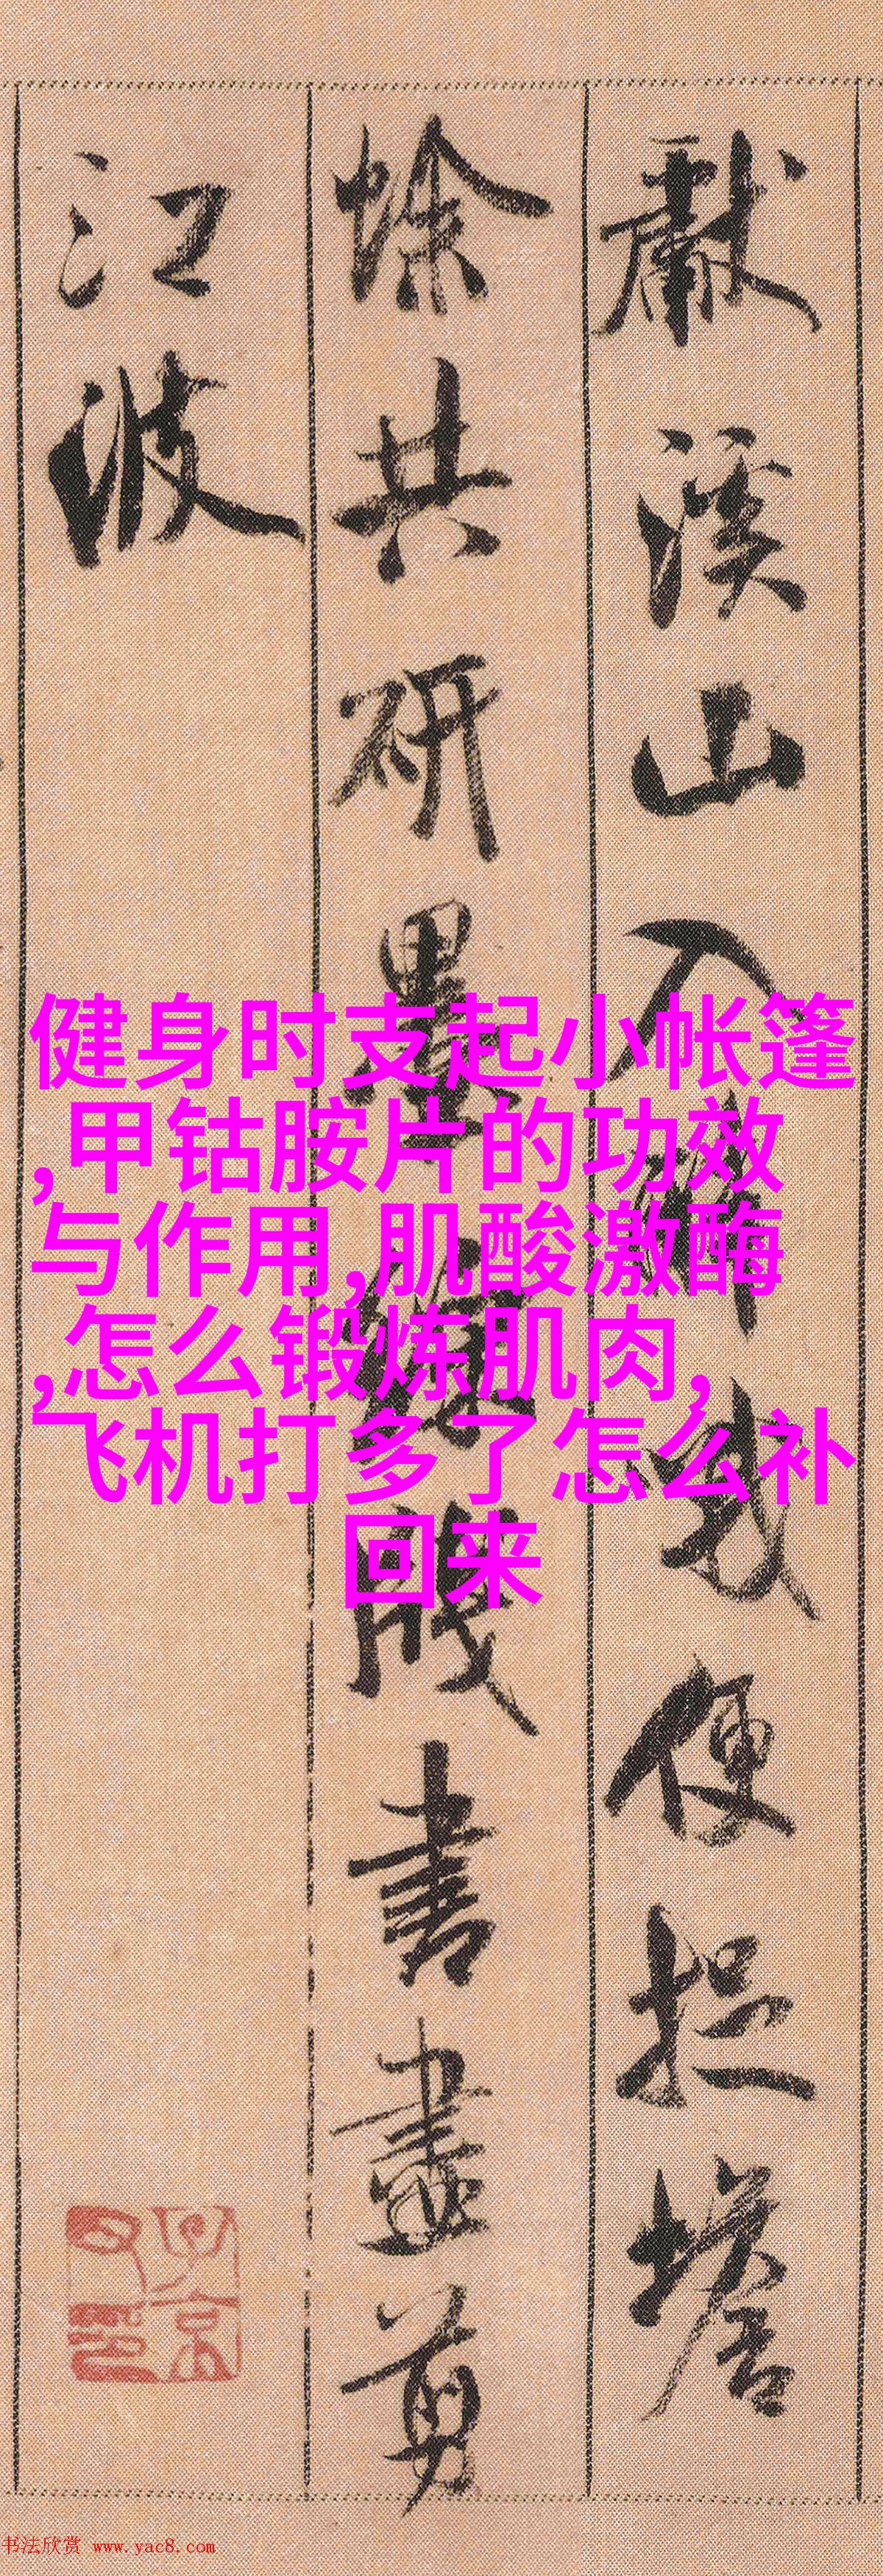 獻溪山入料
便捉塔
蜍共研墨
牋書畫剪
江波
健身时支起小帐篷
,甲钴胺片的功效
与作用,肌酸激酶
,怎么锻炼肌肉,
飞机打多了怎么补
回来
书法欣赏 www.yac8.com